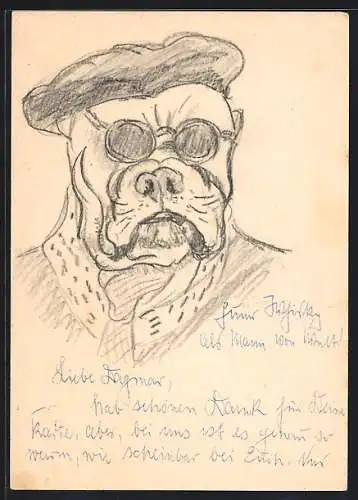 als Mann von Welt!
Liebe Dagmar,
hab schönen Dank für Deine
Karte, aber, bei uns ist es genau so
warm, wie scheinbar bei Euch. Nur